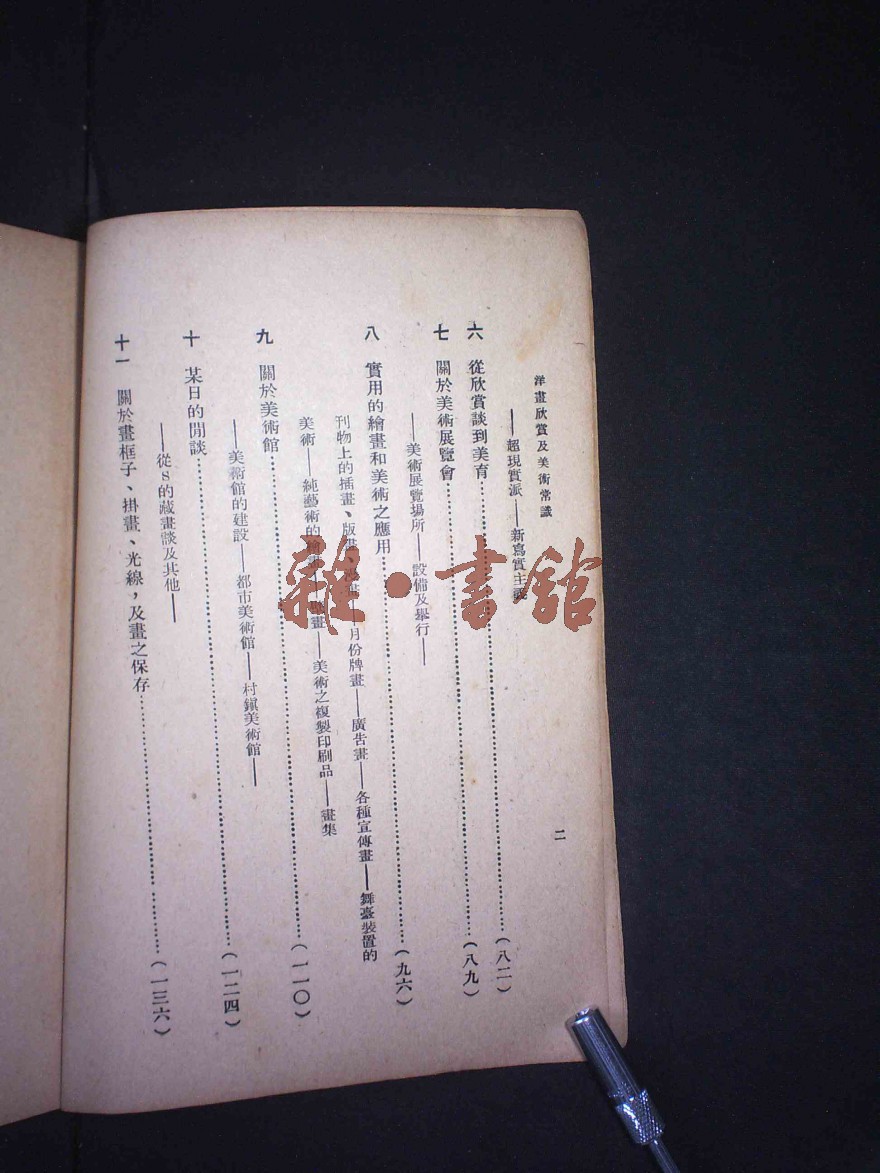 洋畫欣賞及美術常識
二
——超現實派——新寫實主
六 從欣賞談到美育………(八二)
七 關於美術展覽會………(八九)
——美術展覽場所——設備及舉行——
八 實用的繪畫和美術之應用………(九六)
刊物上的插畫、版畫、——月份牌畫——廣告畫——各種宣傳畫——舞臺裝置的
美術——純藝術的——美術之複製印刷品——畫集
九 關於美術館………(一一〇)
——美術館的建設——都市美術館——村鎭美術館——
十 某日的閒談………(一二四)
——從S的藏畫談及其他——
十一 關於畫框子、掛畫、光線，及畫之保存………(一三六)
雜·書館